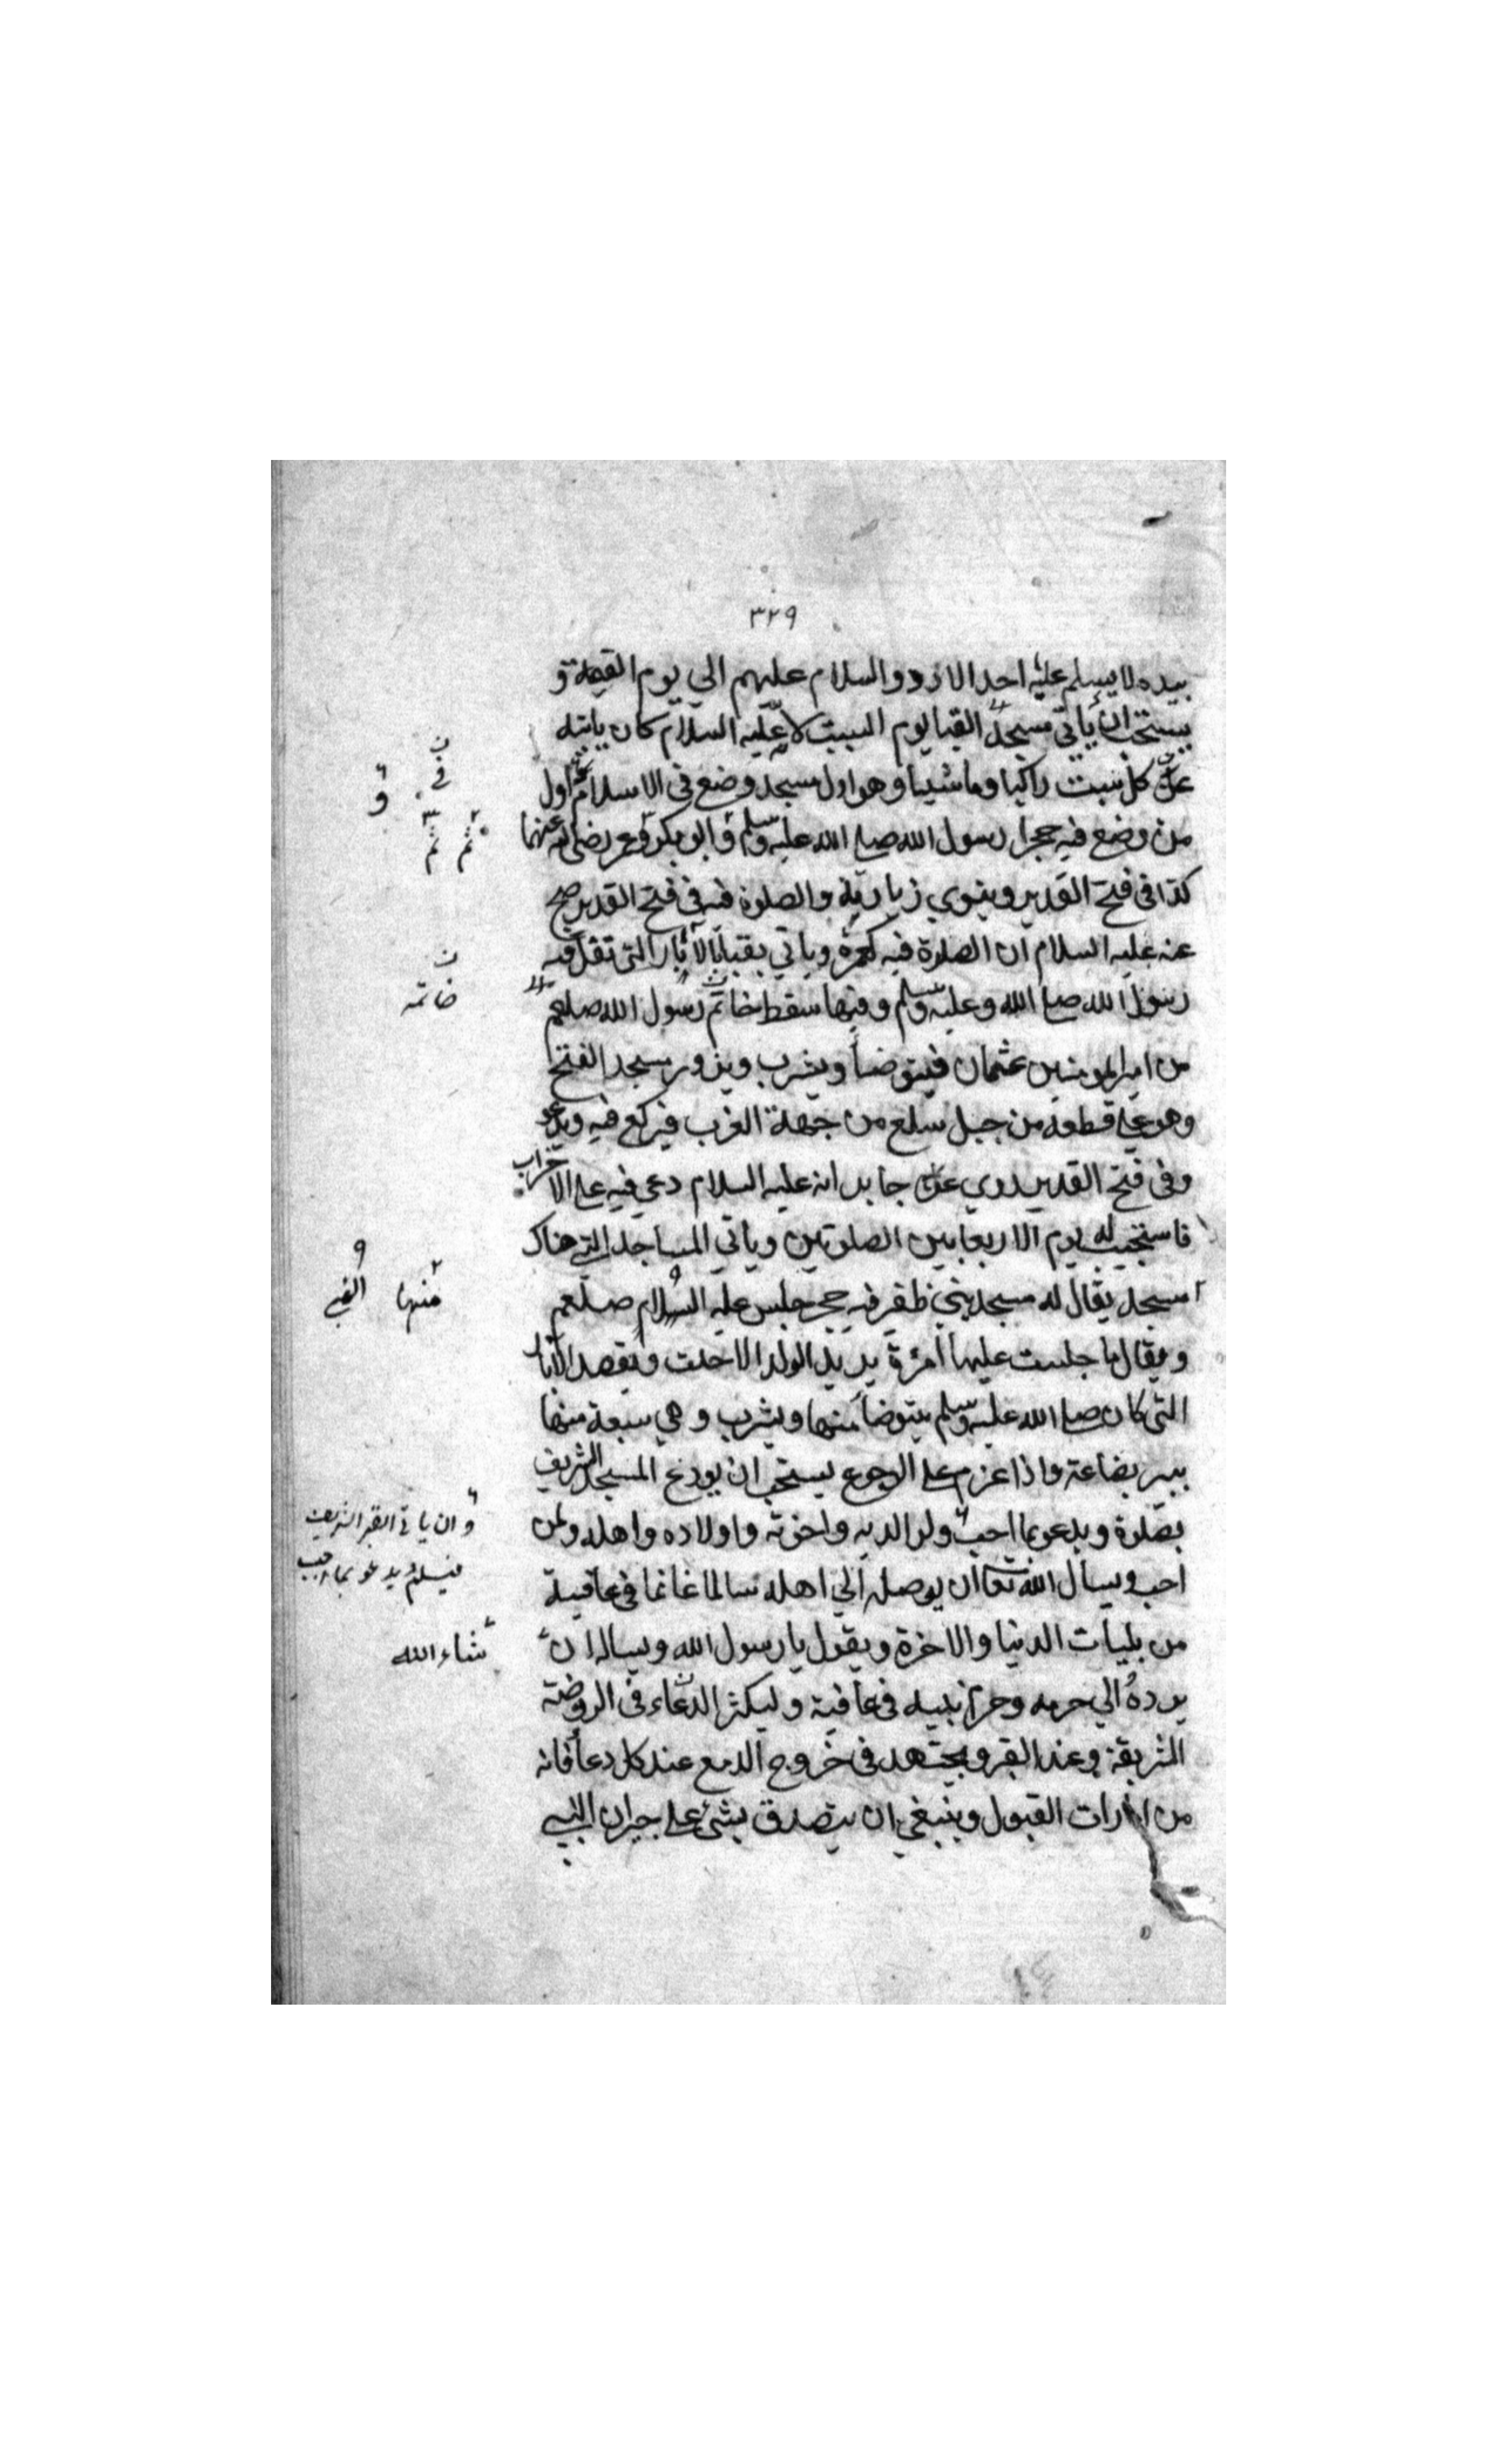 ٣٢٩
بيده لا يسلم عليه احد الا ردو السلام عليهم الي يوم القيمة و
يستحب ان ياتي مسجد القبا يوم السبت لانه عليه السلام كان ياتيه
كل سبت راكبا وماشيا وهو اول مسجد وضع في الاسلام اول
من وضع فيه حجرا رسول الله صلي الله عليه وسلم و ابو بكر وعمر رضي الله عنهما
كذا في فتح القدير وينوي زيارته والصلوة فيه في فتح القدير صح
عنه عليه السلام ان الصلوة فيه كعمرة وياتي بقبا الآبار التي تفل فيه
رسول الله صلي الله وعليه وسلم وفيها سقط خاتم رسول الله صلعم
من امير المومنين عثمان فيتوضأ ويشرب ويزور مسجد الفتح
وهو علي قطعة من جبل سلع من جهة الغرب فيركع فيه ويدعو
وفي فتح القدير روي عن جابر انه عليه السلام دعي فيه علي الاحزاب
فاستجيب له يوم الاربعا بين الصلوتين وياتي المساجد التي هناك
مسجد يقال له مسجد بني ظفر فيه حجر جلس عليه السلام صلعم
ويقال ما جلست عليها امرة يريد الولد الا حبلت ويقصد الآبار
التي كان صلي الله عليه وسلم يتوضأ منها ويشرب وهي سبعة منها
بير بضاعة واذا عزم علي الرجوع يستحب ان يودع المسجد الشريف
بصلوة ويدعو بما احب ولوالديه واخوته واولاده واهله ولمن
احب ويسال الله تعا ان يوصله الي اهله سالما غانما في عافية
من بليات الدنيا والاخرة ويقول يا رسول الله ويساله ان
يرده الي حرمه وحرم نبيه في عافية وليكثر الدعاء في الروضة
الشريفة وعند القبر ويجتهد في خروج الدمع عند كل دعا فانه
من امارات القبول وينبغي ان يتصدق بشئ علي جيران النبي
في و
ثم ثم
خاتمه
منها
وان ياتي القبر الشريف
فيسلم ويدعو بما احب
شاء الله